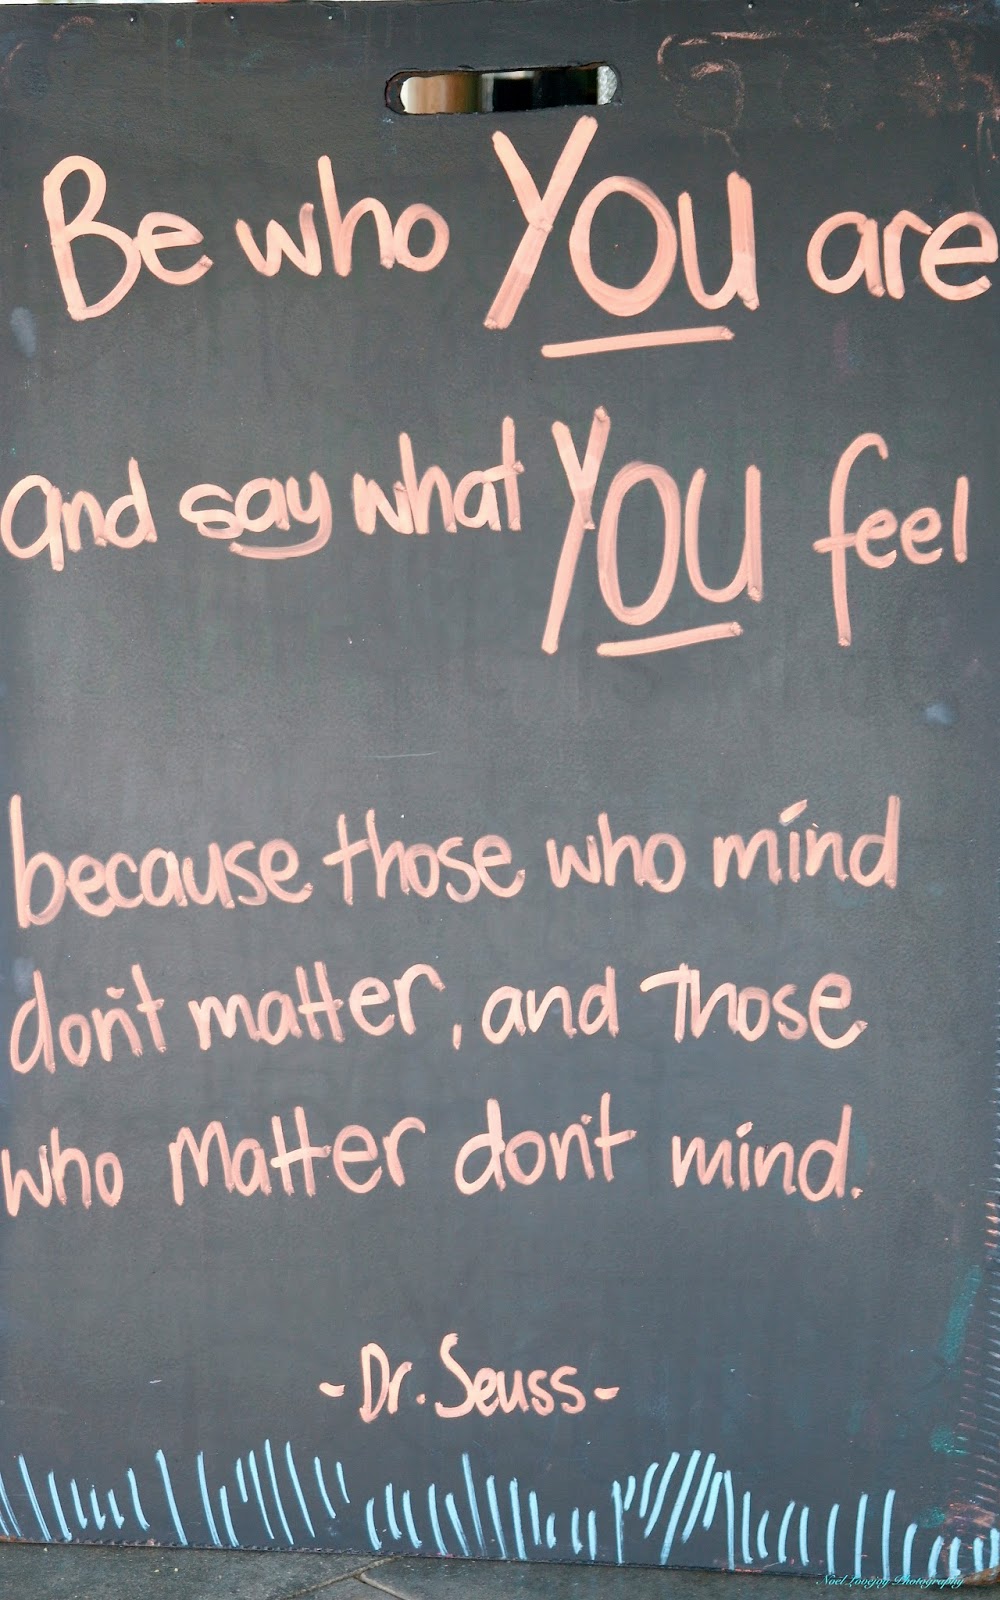 Be who YOU are
and say what YOU feel
because those who mind
don't matter, and those
who matter don't mind.
- Dr. Seuss -
Noel Lovejoy Photography